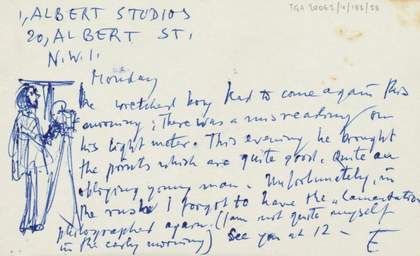 TGA 20062/4/186/28
1, ALBERT STUDIOS
20, ALBERT ST.
N.W.1.
Monday
The wretched boy had to come again this
morning; There was a misreading on
his light meter. This evening he brought
the prints which are quite good. Quite an
obliging young man. Unfortunately, in
the rush I forgot to have the "Lamentation
photographed again. (I am not quite myself
in the early morning) See you at 12 —
E